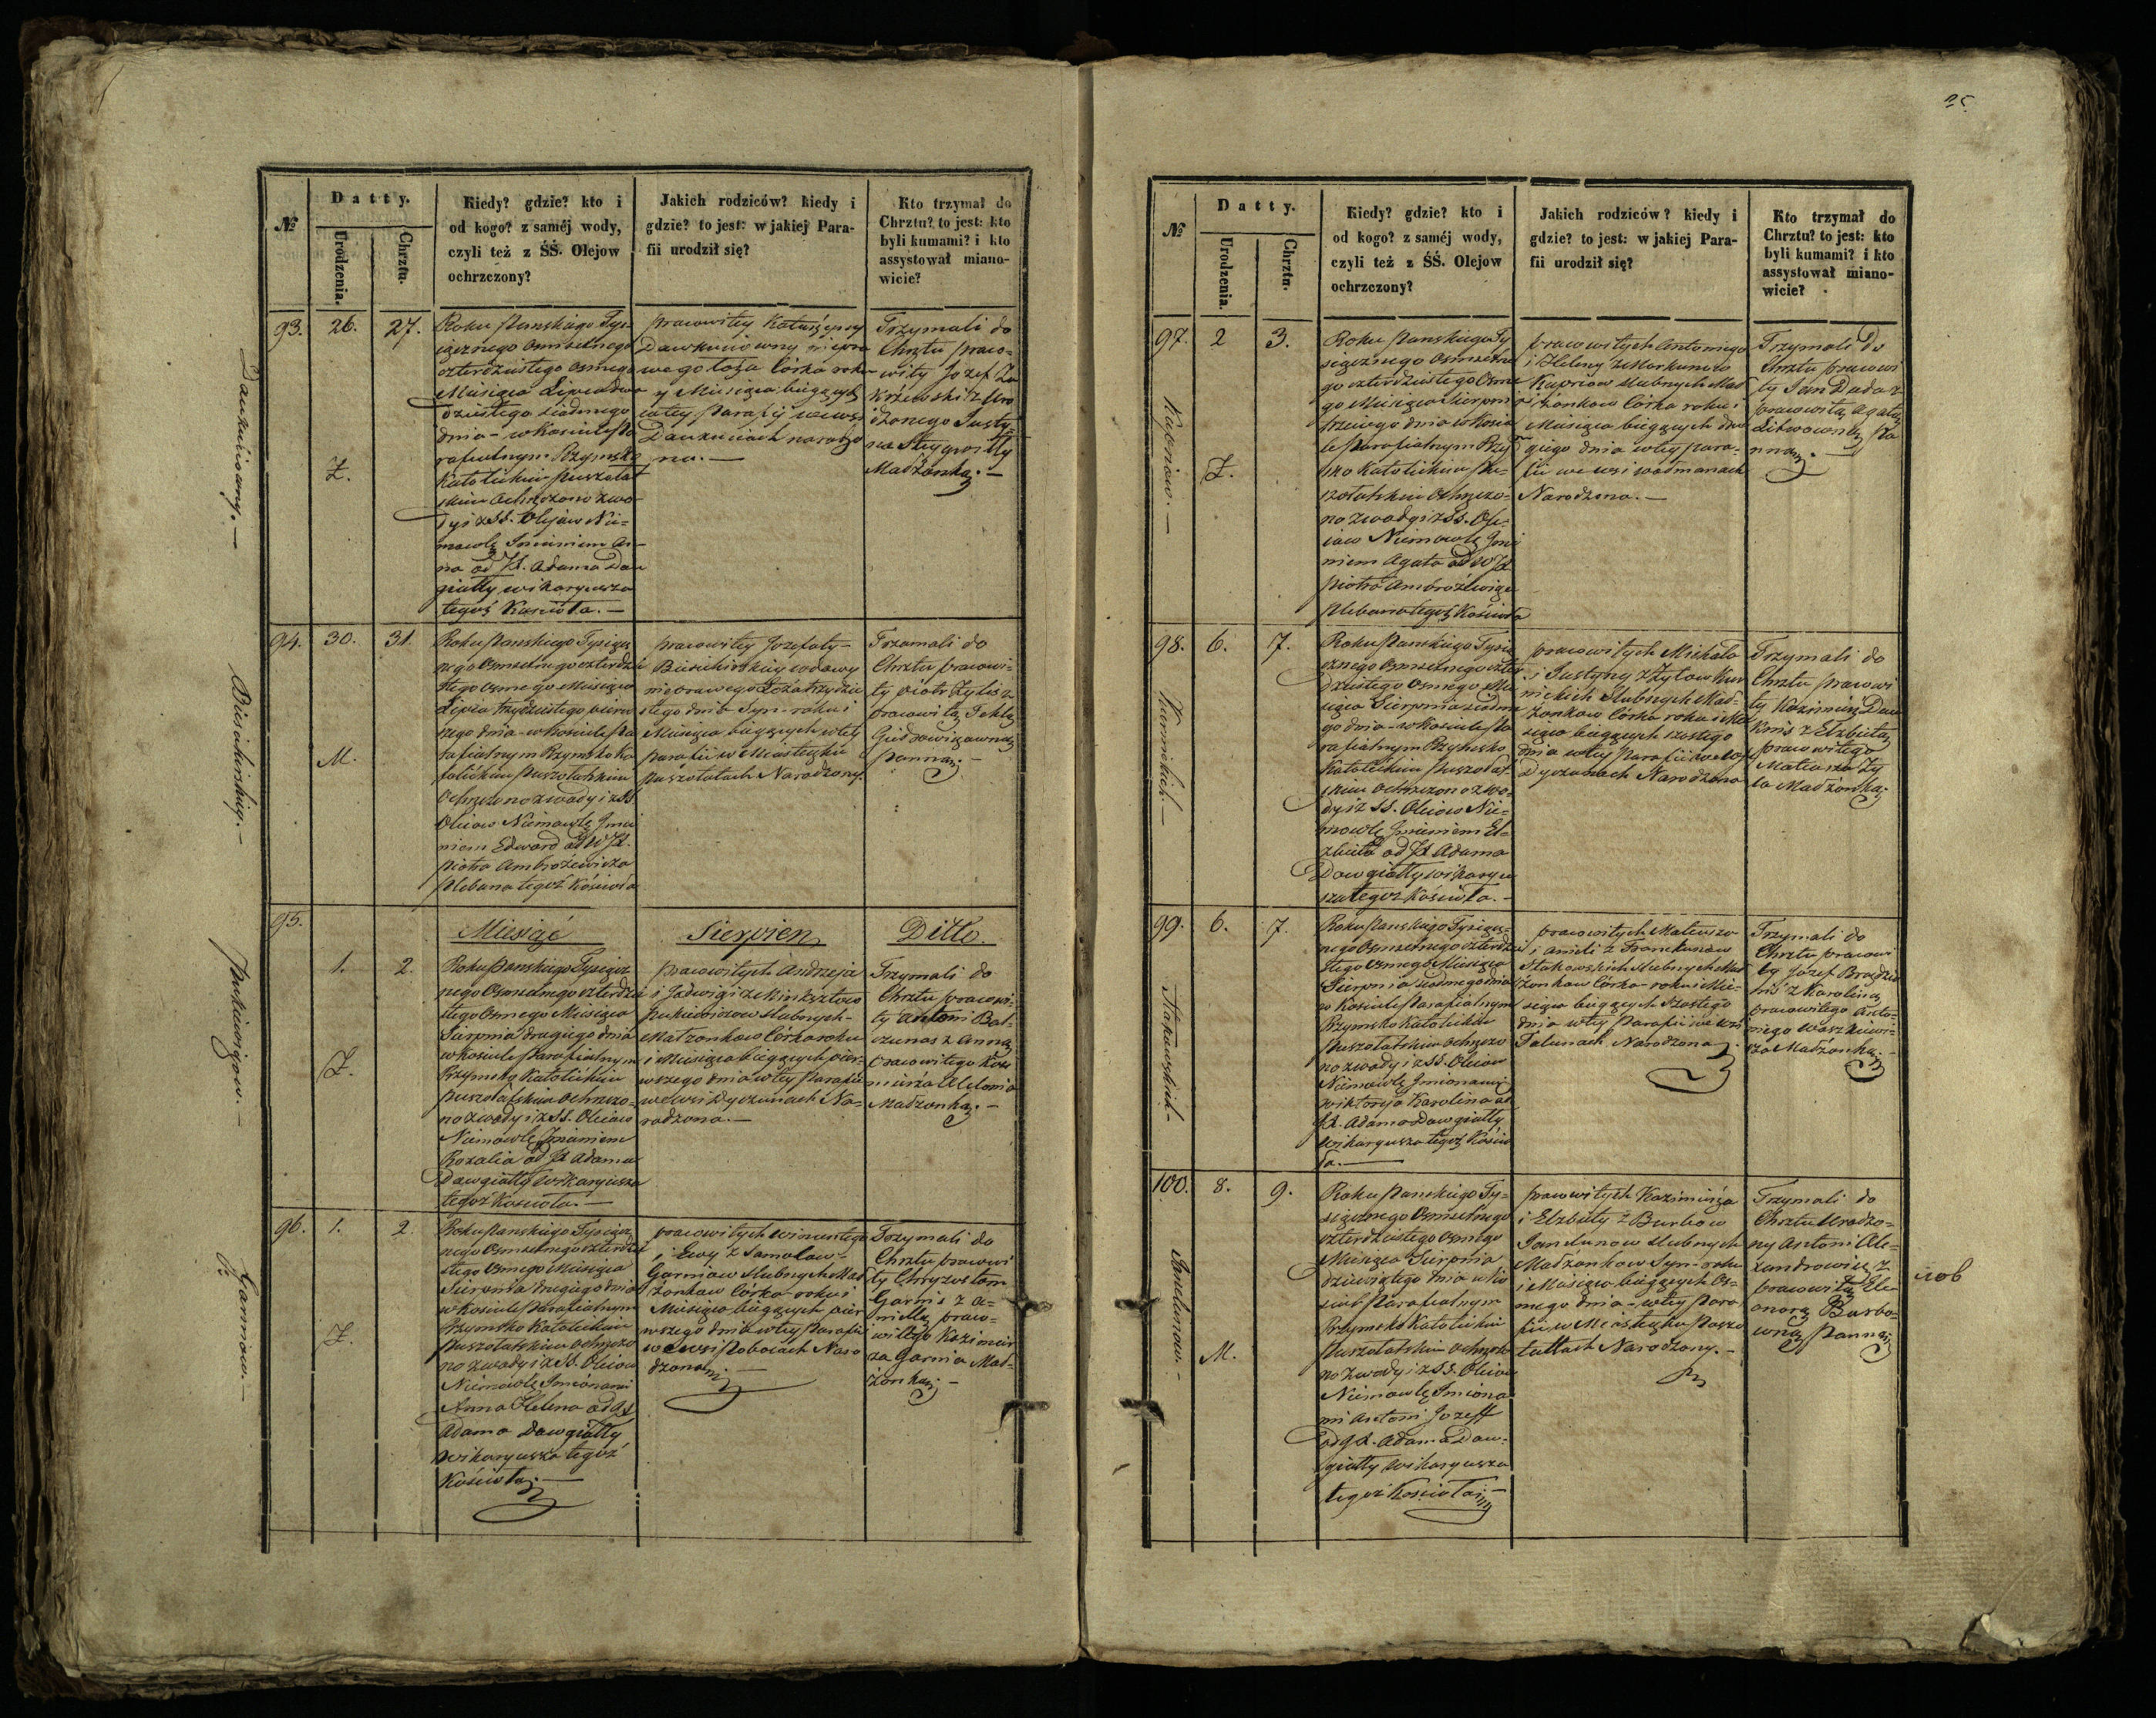 25
№
Datty.
Urodzenia.
Chrztu.
Kiedy? gdzie? kto i
od kogo? z saméj wody,
czyli też z ŚŚ. Olejow
ochrzczony?
Jakich rodziców? kiedy i
gdzie? to jest: w jakiej Para-
fii urodził się?
Kto trzymał do
Chrztu? to jest: kto
byli kumami? i kto
assystował miano-
wicie?
93.
26.
27.
Ż.
Roku Panskiego Tysi
ącznego Osmsetnego
czterdziestego osmego
Miesiąca Lipca dwu
dziestego siódmego
dnia - w Kosciele Pa
rafialnym Rzymsko
Katolickim Puszołat
skim Ochrzczono z wo
dy i z SS. Olejów Nie-
mowlę Imieniem An-
na od JX. Adama Daw
giałły wikaryusza
tegoż Kościoła. —
pracowitey Katarzyny
Dawkuiowny niepra
wego łoża Córka roku
y Miesiąca bieżących
w tey Parafij we wsi
narodzo
na. —
Trzymali do
Chrztu praco-
wity Jozef Za
krżewski z Uro
dzonego Justy-
na
Małżonką. —
94.
30.
31.
M.
Roku Panskiego Tysiącz
nego Osmsetnego czterdzie
stego osmego Miesiąca
Lipca trzydziestego pierw
szego dnia - w kosciele Pa
rafialnym Rzymsko Ka
tolickim Puszołatskim
Ochrzczono z wody i z SS.
Olejow Niemowlę Imie
niem Edward od W JX.
Piotra Ambrożewicza
Plebana tegoż Kościoła
pracowitey Jozefaty
wdowy
nieprawego Łoża trzydzie
stego dnia Syn - roku i
Miesiąca bieżących w tey
parafii w Miasteczku
Puszołatach Narodzony.
Trzymali do
Chrztu pracowi-
ty Piotr Żylis z
pracowitą Teklą
panną. —
95.
Miesiąć
Sierpień
Ditto.
1.
2.
Ż.
Roku Panskiego Tysiącz
nego Osmsetnego czterdzie
stego Osmego Miesiąca
Sierpnia drugiego dnia
w kosciele Parafialnym
Rzymsko Katolickim
Puszołatskim Ochrzczo-
no z wody i z SS. Olejow
Niemowlę Imieniem
Rozalia od JX Adama
Dawgiałły Wikaryusza
tegoż Kościoła. —
pracowitych Andrzeja
i Jadwigi z Rinksztow
Pukiewiczow slubnych -
Małżonkow Córka roku
i Miesiąca bieżących pier-
wszego dnia w tey Parafii
we wsi Dyczunach Na-
rodzona. —
Trzymali do
Chrztu pracowi-
ty Antoni Bal-
czunas z Anną
pracowitego Kazi
mierza
Małżonką. —
96.
1.
2.
Ż.
Roku Panskiego Tysiącz
nego Osmsetnego czterdzie
stego Osmego Miesiąca
Sierpnia drugiego dnia
w kosciele Parafialnym
Rzymsko Katolickim
Puszołatskim Ochrzczo
no z wody i z SS. Olejow
Niemowlę Imionami
Anna Helena od JX
Adama Dawgiałły
Wikaryusza tegoż
Kościoła. —
pracowitych Wincentego
i Ewy z
Garniow slubnych Mał
żonkow Córka - roku i
Miesiąca bieżących pier
wszego dnia w tey Parafii
we wsi Naro
dzona. —
Trzymali do
Chrztu pracowi
ty Chryzostom
Garnis z A-
nielą praco-
witego Kazimier
za Garnia Mał-
żonką. —
Pukiewiczow. —
Garniow. —
№
Datty.
Urodzenia.
Chrztu.
Kiedy? gdzie? kto i
od kogo? z saméj wody,
czyli też z ŚŚ. Olejow
ochrzczony?
Jakich rodziców? kiedy i
gdzie? to jest: w jakiej Para-
fii urodził się?
Kto trzymał do
Chrztu? to jest: kto
byli kumami? i kto
assystował miano-
wicie?
97.
2
3.
Ż.
Roku Panskiego Ty
siącznego Osmsetne
go czterdziestego Osme
go Miesiąca Sierpnia
trzeciego dnia w Koscie
le Parafialnym Rzym
sko Katolickim Pu-
szołatskim Ochrzczo-
no z wody i z SS. Ole-
iow Niemowlę Imie
niem Agata od W JX
Piotra Ambrożewicza
Plebana tegoż Kościoła
pracowitych Antoniego
i Heleny z Markunow
Kupriow slubnych Mał
żonkow Córka roku i
Miesiąca bieżących dru
giego dnia w tey para-
fii we wsi
Narodzona. —
Trzymali do
Chrztu pracowi
ty Jan Duda z
pracowitą Agatą
Litwowną Pa
nną. —
98.
6.
7.
Roku Panskiego Tysią
cznego Osmsetnego czter
dziestego Osmego Mie
siąca Sierpnia siódme
go dnia - w kosciele Pa
rafialnym Rzymsko
Katolickim Puszołat
skim Ochrzczono z wo-
dy i z SS. Olejow Nie-
mowlę Imieniem El-
żbieta od JX Adama
Dawgiałły Wikaryu
sza tegoż Kościoła. —
pracowitych Michała
i Justyny z Żyłow Kur
nickich Slubnych Mał-
żonkow Córka roku i Mie
siąca bieżących szostego
dnia w tey Parafii we wsi
Dyczunach Narodzona
Trzymali do
Chrztu pracowi
ty Kazimierz Daw
knis z Elżbietą
pracowitego
Mateusza Ży
ła Małżonką.
99.
6.
7.
Roku Panskiego Tysiącz-
nego Osmsetnego czterdzie
stego Osmego Miesiąca
Sierpnia siódmego dnia
w Kosciele Parafialnym
Rzymsko Katolickim
Puszołatskim Ochrzczo
no z wody i z SS. Olejow
Niemowlę Imionami
Wiktorja Karolina od
JX. Adama Dawgiałły
Wikaryusza tegoż Kościo
ła. —
pracowitych Mateusza
i Anieli z
Stakowskich slubnych Mał
żonkow Córka - roku i Mie-
siąca bieżących Szostego
dnia w tey Parafii we wsi
Talunach Narodzona.
Trzymali do
Chrztu pracowi
ty Józef
z Karoliną
pracowitego Anto-
niego Waszkiewi-
cza Małżonką. —
100.
8.
9.
M.
Roku Panskiego Ty-
siącznego Osmsetnego
czterdziestego Osmego
Miesiąca Sierpnia
dziewiątego dnia w Ko
sciele Parafialnym
Rzymsko Katolickim
Puszołatskim Ochrzczo
no z wody i z SS. Olejow
Niemowlę Imiona
mi Antoni Jozeff
od JX. Adama Daw-
giałły Wikaryusza
tegoż Kościoła. —
pracowitych Kazimierza
i Elżbiety z Burbow
Jandunow slubnych
Małżonkow Syn - roku
i Miesiąca bieżących Os-
mego dnia - w tey para
fii w Miasteczku Puszo
łattach Narodzony. —
Trzymali do
Chrztu Urodzo-
ny Antoni Ale-
xandrowicz z
pracowitą Ele-
onorą Burbo-
wną Panną
Kupriow. —
Stakowskich —
Jandunow. —